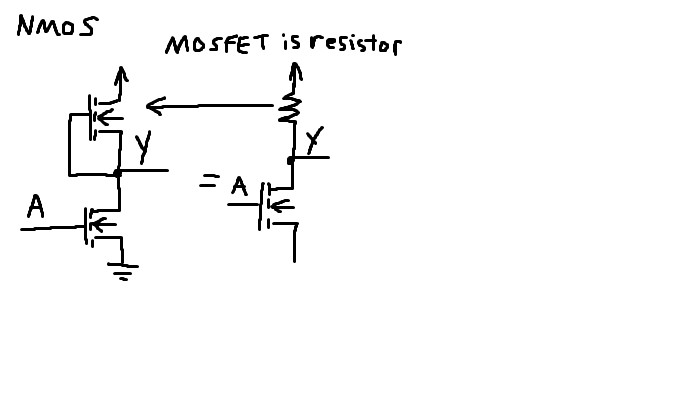 NMOS
MOSFET is resistor
Y
Y
= A
A